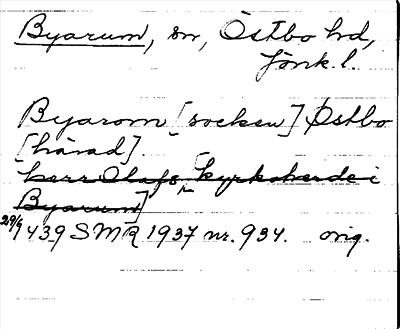 Byarum, sn, Östbo hd,
Jönk. l.
Byarom [socken] Østbo
[härad].
herr Olafs [kyrkoherde i
Byarum]
29/9 1439 SMR 1937 nr. 934. orig.